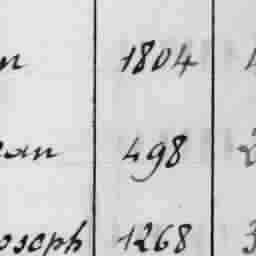 n 1804
ean 498
oseph 1268